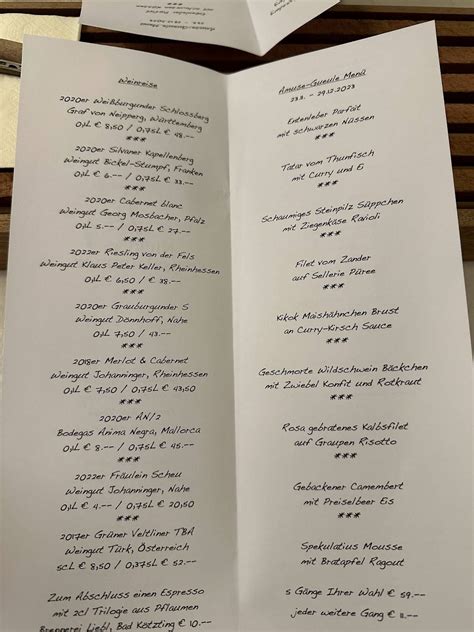 Weinreise
2020er Weißburgunder Schlossberg
Graf von Neipperg, Württemberg
0,1L € 8,50 / 0,75L € 48.--
***
2020er Silvaner Kapellenberg
Weingut Bickel-Stumpf, Franken
0,1L € 6.-- / 0,75L € 33.--
***
2020er Cabernet blanc
Weingut Georg Mosbacher, Pfalz
0,1L 5.-- / 0,75L € 27.--
***
2022er Riesling von der Fels
Weingut Klaus Peter Keller, Rheinhessen
0,1L € 6,50 / € 38.--
***
2020er Grauburgunder S
Weingut Dönnhoff, Nahe
0,1L 7,50 / 43.--
***
2018er Merlot & Cabernet
Weingut Johanninger, Rheinhessen
0,1L € 7,50 / 0,75L € 43,50
***
2020er ÁN/2
Bodegas Ánima Negra, Mallorca
0,1L € 8.-- / 0,75L € 45.--
***
2022er Fräulein Scheu
Weingut Johanninger, Nahe
0,1L € 4.-- / 0,75L € 20,50
***
2017er Grüner Veltliner TBA
Weingut Türk, Österreich
5cL € 8,50 / 0,375L € 52.--
Zum Abschluss einen Espresso
mit 2cl Trilogie aus Pflaumen
Brennerei Liebl, Bad Kötzting € 10.--
Amuse-Gueule Menü
23.3. - 29.12.2023
Entenleber Parfait
mit schwarzen Nüssen
***
Tatar vom Thunfisch
mit Curry und Ei
***
Schaumiges Steinpilz Süppchen
mit Ziegenkäse Ravioli
***
Filet vom Zander
auf Sellerie Püree
***
Kikok Maishähnchen Brust
an Curry-Kirsch Sauce
***
Geschmorte Wildschwein Bäckchen
mit Zwiebel Konfit und Rotkraut
***
Rosa gebratenes Kalbsfilet
auf Graupen Risotto
***
Gebackener Camembert
mit Preiselbeer Eis
***
Spekulatius Mousse
mit Bratapfel Ragout
5 Gänge Ihrer Wahl € 59.--
jeder weitere Gang € 11.--